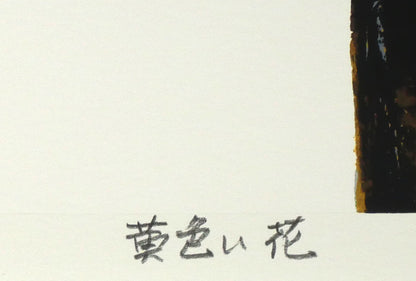 黄色い花